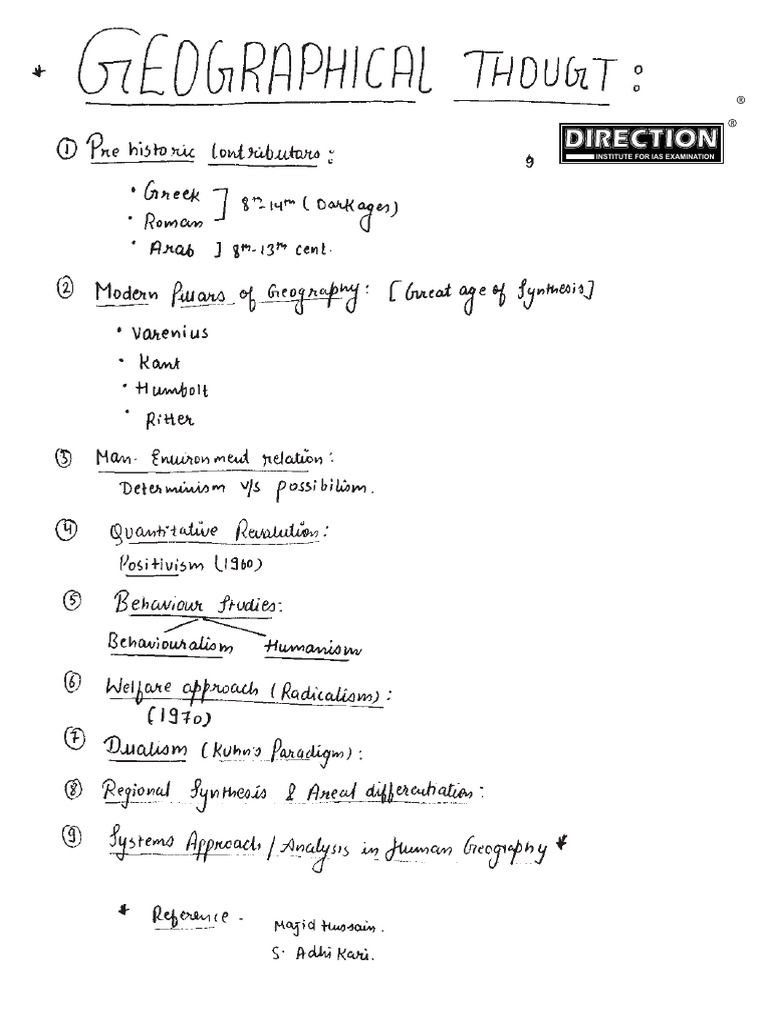 * GEOGRAPHICAL THOUGT :
®
DIRECTION ®
INSTITUTE FOR IAS EXAMINATION
① Pre historic Contributors :
• Greek
• Roman ] 8th-14th (Dark ages)
• Arab ] 8th-13th cent.
② Modern Pillars of Geography : [Great age of Synthesis]
• Varenius
• Kant
• Humbolt
• Ritter
③ Man- Environment relation :
Determinism v/s possibilism.
④ Quantitative Revolution :
Positivism (1960)
⑤ Behaviour Studies :
Behaviouralism Humanism
⑥ Welfare approach (Radicalism) :
(1970)
⑦ Dualism (Kuhn's Paradigm) :
⑧ Regional Synthesis & Areal differentiation :
⑨ Systems Approach / Analysis in Human Geography *
* Reference - Majid Hussain.
S. Adhi Kari.